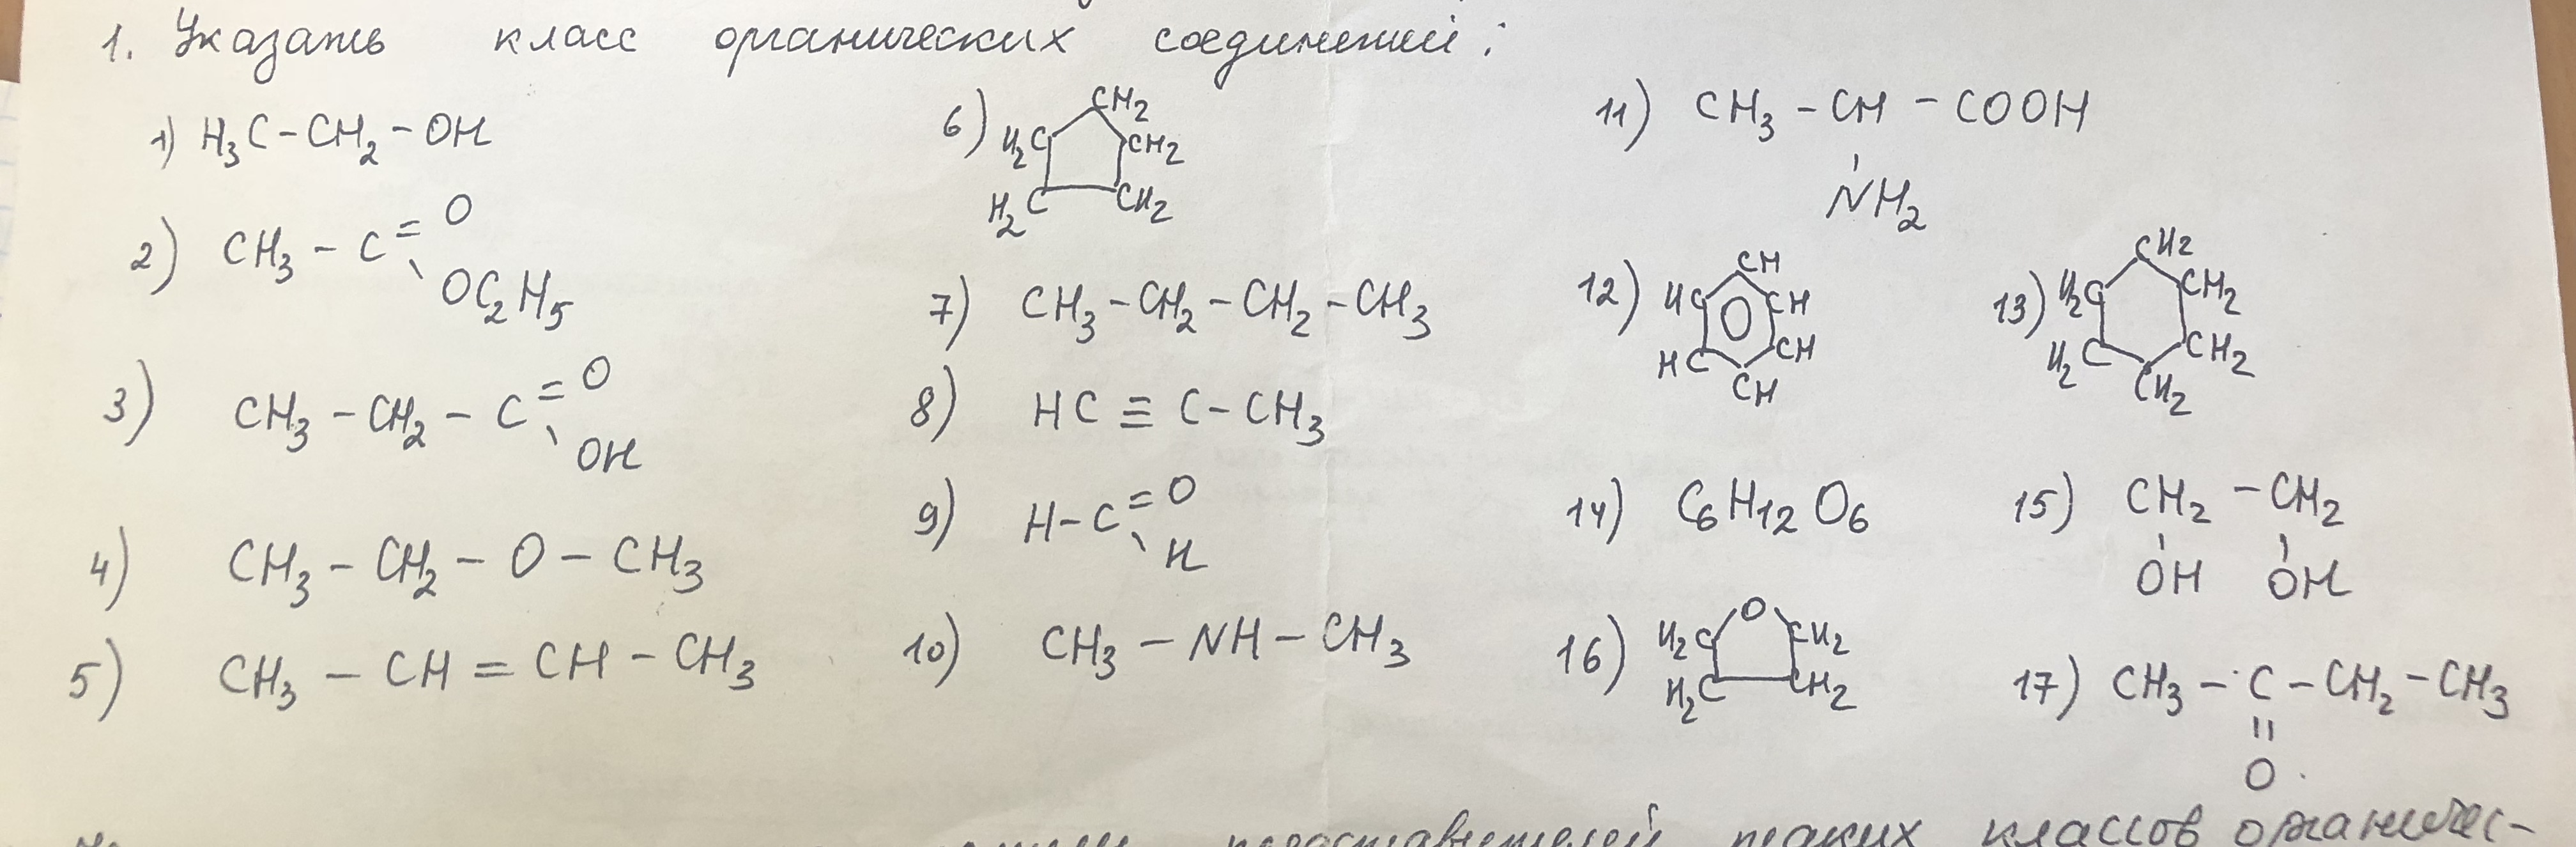 1. Указать класс органических соединений:
1) H3C-CH2-OH
2) CH3-C=O
OC2H5
3) CH3-CH2-C=O
OH
4) CH3-CH2-O-CH3
5) CH3-CH=CH-CH3
6) CH2
H2C CH2
H2C CH2
7) CH3-CH2-CH2-CH3
8) HC≡C-CH3
9) H-C=O
H
10) CH3-NH-CH3
11) CH3-CH-COOH
NH2
12) CH
HC CH
HC CH
CH
13) CH2
H2C CH2
H2C CH2
CH2
14) C6H12O6
15) CH2-CH2
OH OH
16) O
H2C CH2
H2C CH2
17) CH3-C-CH2-CH3
O
представителей таких классов органичес-